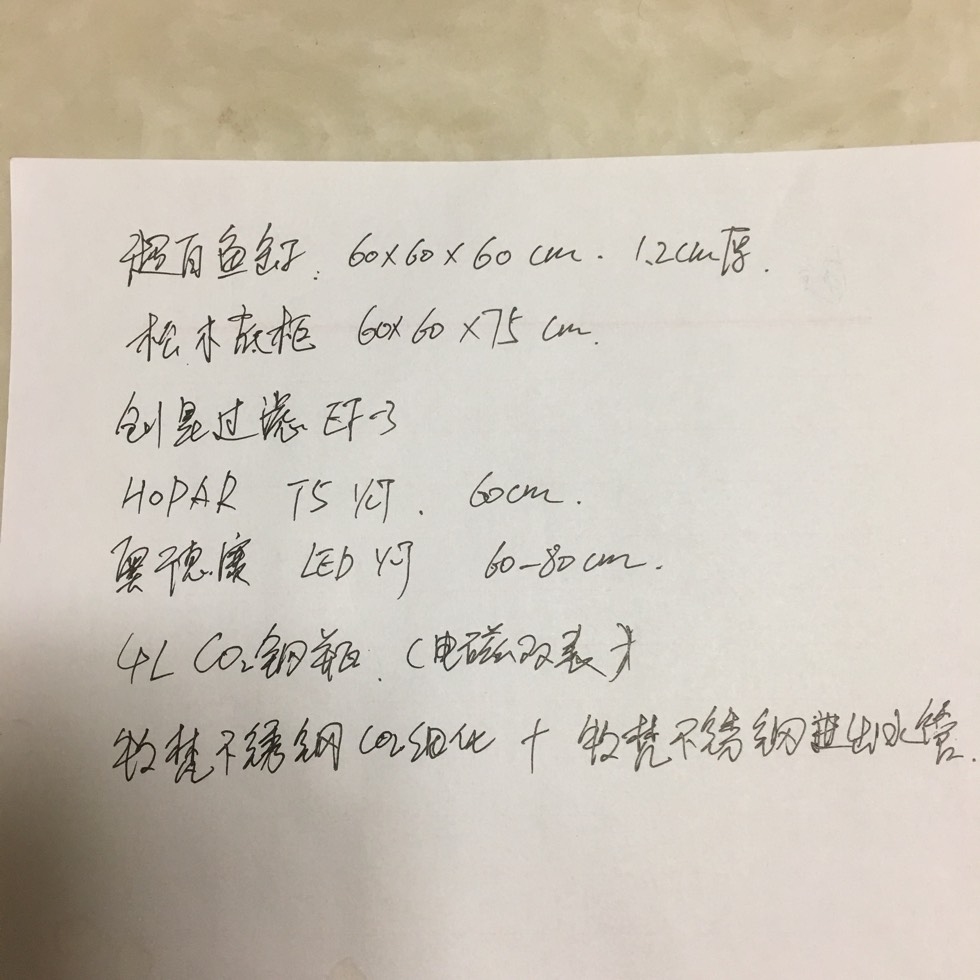 超白鱼缸. 60×60×60cm. 1.2cm厚.
松木底柜 60×60×75cm.
创星过滤 EF-3
HOPAR T5灯. 60cm.
奥德赛 LED灯 60-80cm.
4L CO₂钢瓶. (电磁双表)
牧梵不锈钢CO₂细化 + 牧梵不锈钢进出水管.